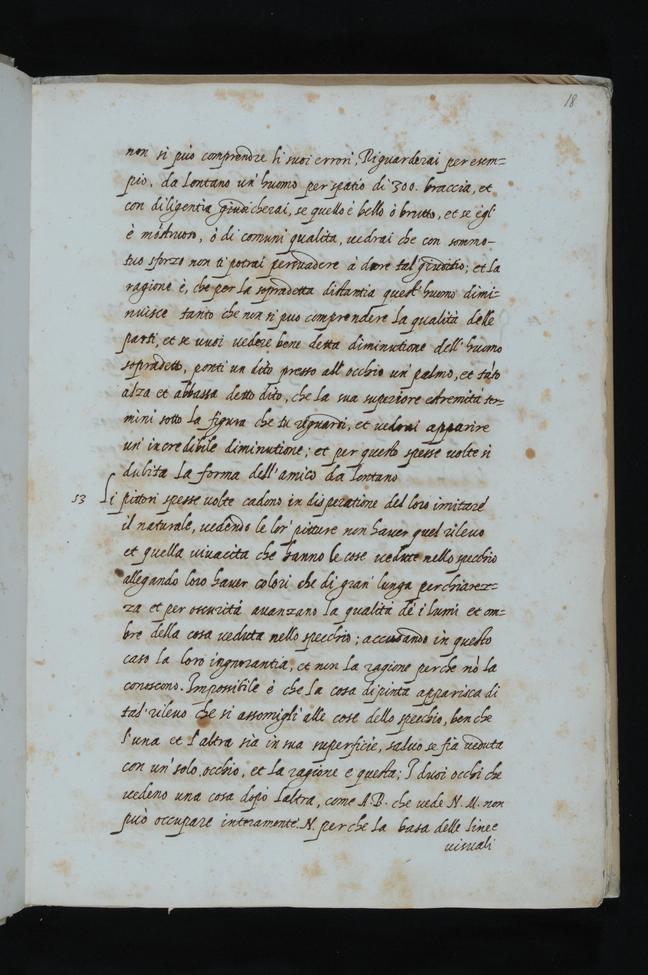 18
non si può comprendre li suoi errori, Riguarderai per esem=
pio, da lontano un' huomo per spatio di 300. braccia, et
con diligentia giudicherai, se quello è bello ò brutto, et se egl'
è móstruoso, ò di comuni qualita, uedrai che con sommo-
tuo sforzo non ti potrai persuadere à dare tal' giuditio; et la
ragione è, che per la sopradetta distantia quest' huomo dimi-
nuisce tanto che non si puo comprendere la qualità delle
parti, et se uuoi uedere bene detta diminutione dell' huomo
sopradetto, ponti un dito presso all' occhio un' palmo, et tãto
alza et abbassa detto dito, che la sua superiore estremità ter-
mini sotto la figura che tu riguardi, et uedrai apparire
un' incredibile diminutione; et per questo spesse uolte si
dubita la forma dell' amico da lontano
53 Li pittori spesse uolte cadono in disperatione del loro imitare
il naturale, uedendo le lor' pitture non hauer quel rileuo
et quella uiuacita che hanno le cose uedute nello specchio
allegando loro hauer colori che di gran' lunga per chiarez-
za et per oscurità auanzano la qualità di i lumi et om=
bre della cosa ueduta nello specchio; accusando in questo
caso la loro ingnorantia, et non la ragione perche nõ la
conoscono. Impossibile è che la cosa dipinta apparisca di
tal' rileuo che si assomigli alle cose dello specchio, ben che
l'una et l'altra sia in sua superficie, saluo se fia ueduta
con un' solo occhio, et la ragione e questa; I duoi occhi che
uedeno una cosa dopò laltra, come A.B. che uede N.M. non
può occupare interamente. N. perche la basa delle linee
uisuali